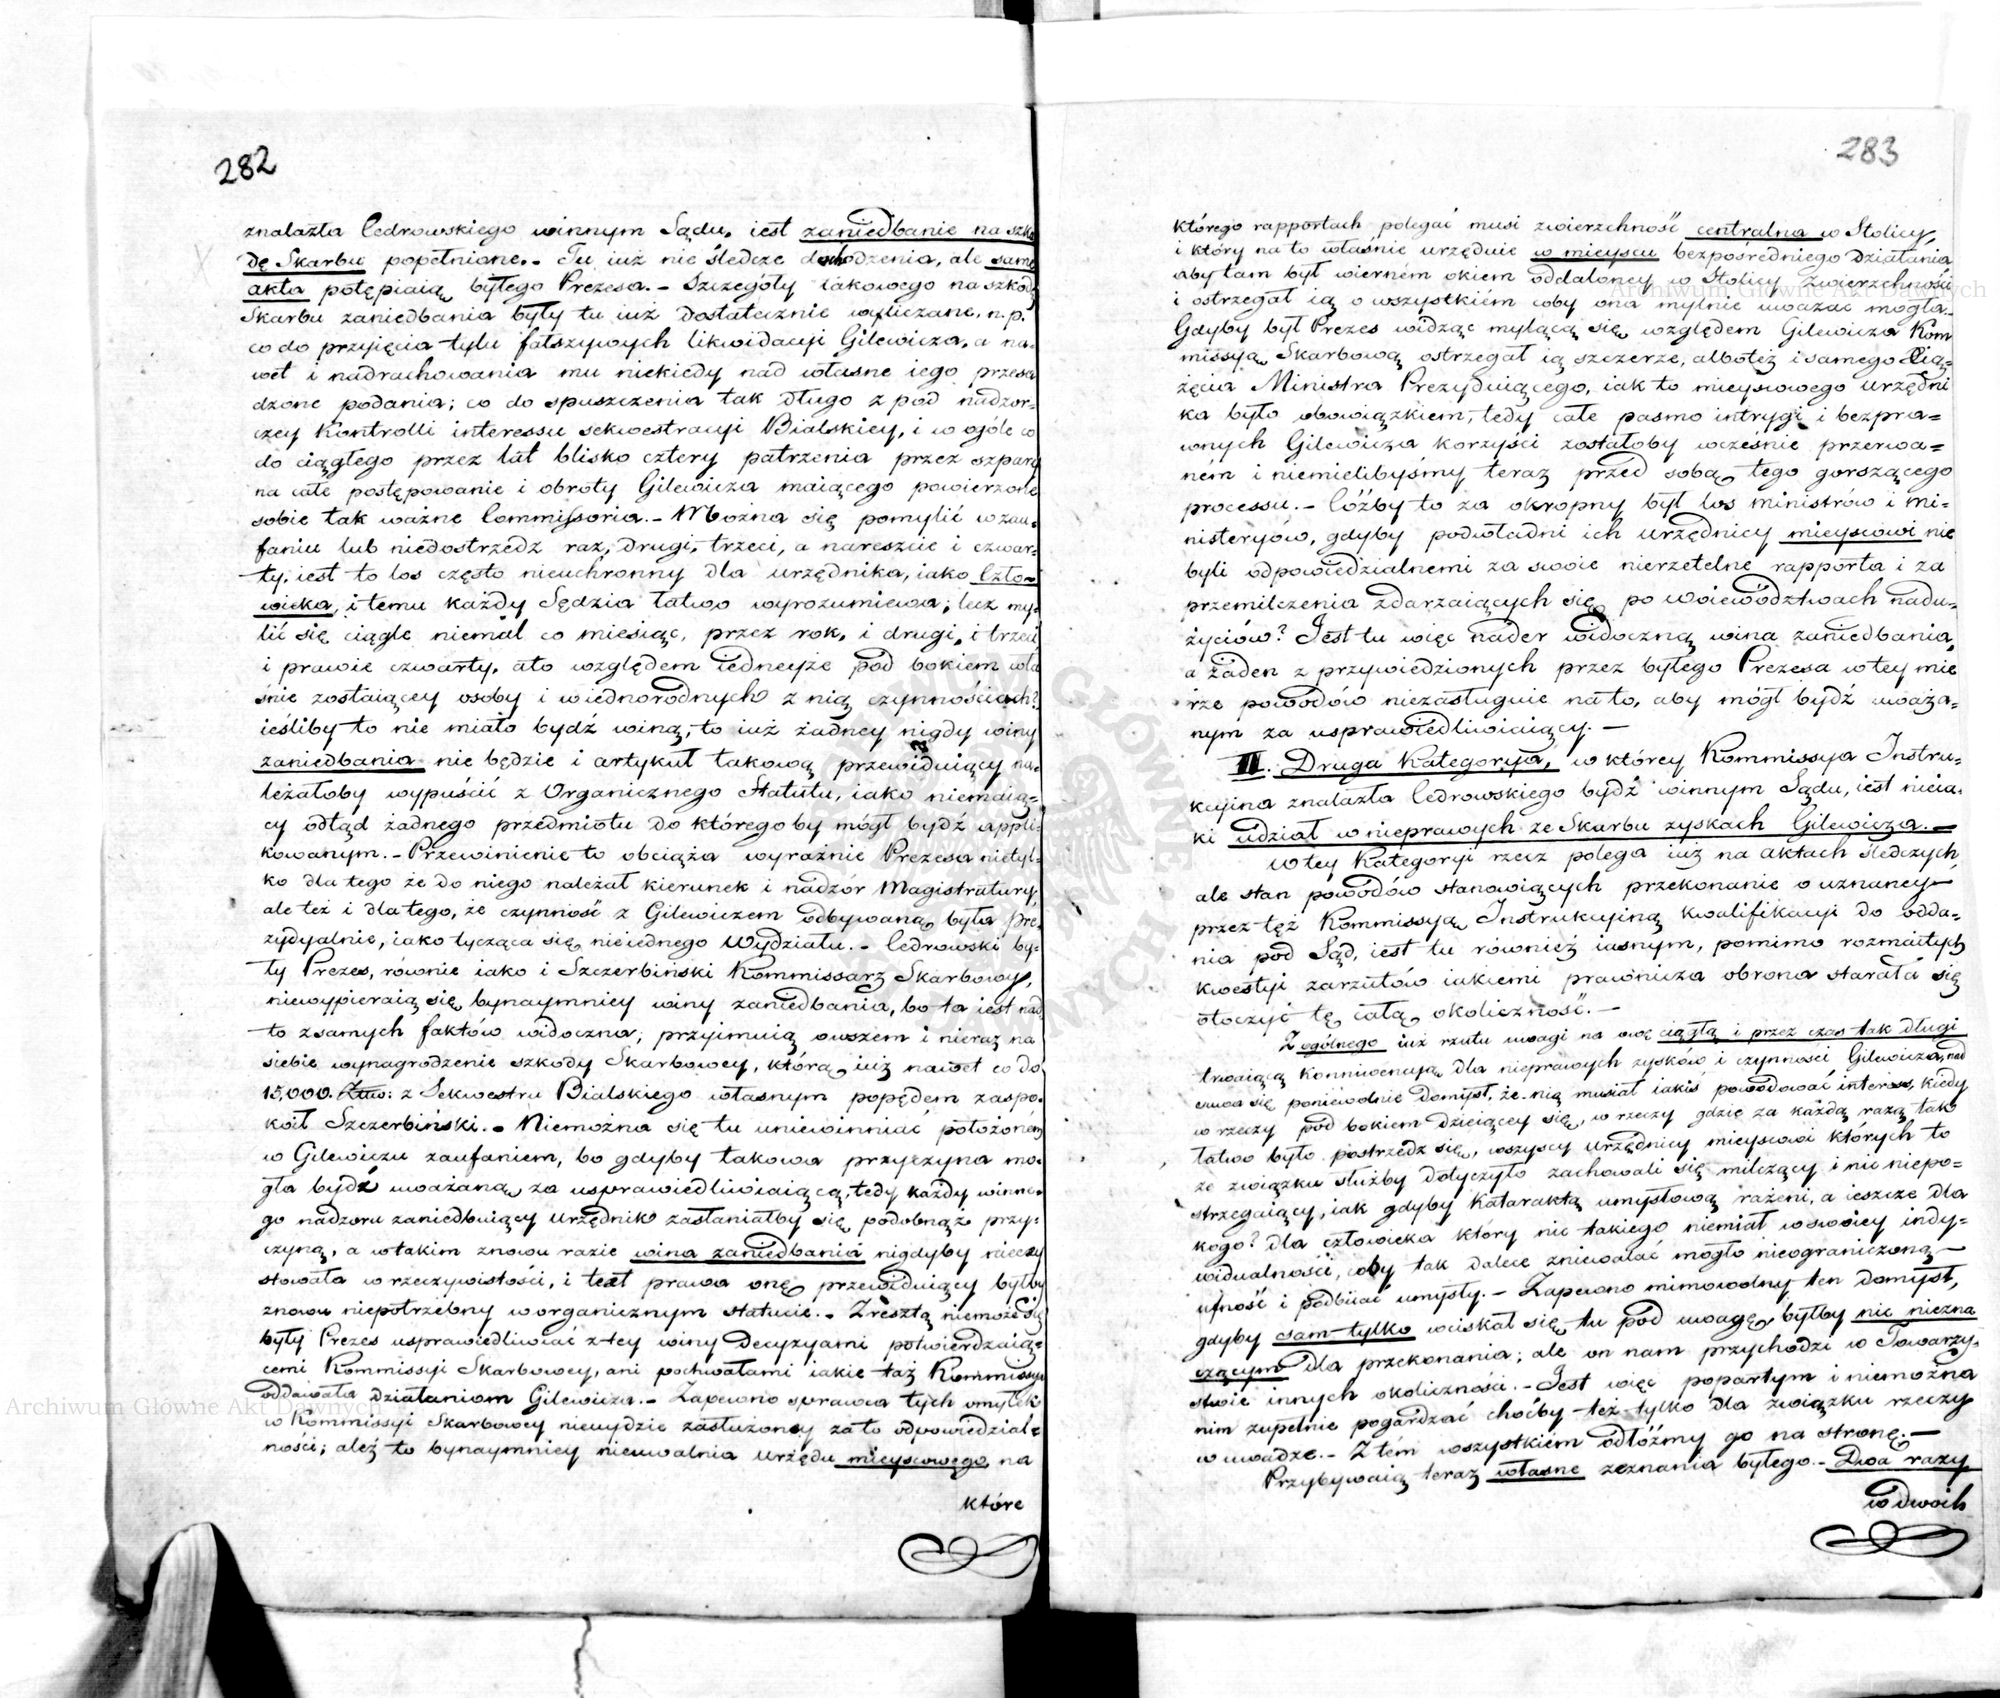 282
znalazła Cedrowskiego winnym Sądu, iest zaniedbanie na szko-
dę Skarbu popełnione. - Tu iuż nie śledcze dochodzenia, ale same
akta potępiaią byłego Prezesa. - Szczegóły iakowego na szkodę
Skarbu zaniedbania były tu iuż dostatecznie wyliczane, n.p.
co do przyięcia tylu fałszywych likwidacyi Gilewicza, a na-
wet i nadrachowania mu niekiedy nad własne iego przesa
dzone podania; co do spuszczenia tak długo z pod nadzor-
czey Kontrolli interessu sekwestracyi Bialskiey, i w ogóle co
do ciągłego przez lat blisko cztery patrzenia przez szpary
na całe postępowanie i obroty Gilewicza maiącego powierzone
sobie tak ważne Commissoria. - Można się pomylić w zau-
faniu lub niedostrzedz raz, drugi, trzeci, a nareszcie i czwar-
ty; iest to los często nieuchronny dla urzędnika, iako Czło-
wieka, i temu każdy Sędzia łatwo wyrozumiewa; lecz my-
lić się ciągle niemal co miesiąc, przez rok, i drugi, i trzeci
i prawie czwarty, a to względem iedneyże pod bokiem wła
śnie zostaiącey osoby i w iednorodnych z nią czynnościach?
ieśliby to nie miało bydź winą, to iuż żadney nigdy winy
zaniedbania nie będzie i artykuł takową przewiduiący na-
leżałoby wypuścić z Organicznego Statutu, iako niemaią-
cy odtąd żadnego przedmiotu do którego by mógł bydź appli-
kowanym. - Przewinienie to obciąża wyraźnie Prezesa nietyl-
ko dla tego że do niego należał kierunek i nadzór Magistratury,
ale też i dla tego, że czynność z Gilewiczem odbywaną była pre-
zydyalnie, iako tycząca się nieiednego Wydziału. - Cedrowski by-
ły Prezes, równie iako i Szczerbiński Kommissarz Skarbowy,
niewypieraią się bynaymniey winy zaniedbania, bo ta iest nad
to z samych faktów widoczna; przyimuią owszem i nieraz na
siebie wynagrodzenie szkody Skarbowey, którą iuż nawet co do
15,000. z Sekwestru Bialskiego własnym popędem zaspo-
koił Szczerbiński. - Niemożna się tu uniewinniać położoném
w Gilewiczu zaufaniem, bo gdyby takowa przyczyna mo-
gła bydź uważaną za usprawiedliwiaiącą, tedy każdy winne-
go nadzoru zaniedbuiący urzędnik zasłaniałby się podobnąż przy-
czyną, a w takim znowu razie wina zaniedbania nigdyby nieexy
stowała w rzeczywistości, i text prawa onę przewiduiący byłby
znowu niepotrzebny w organicznym statucie. - Zresztą niemoże się
były Prezes usprawiedliwiać z tey winy Decyzyami potwierdzaią-
cemi Kommissyi Skarbowey, ani pochwałami iakie taż Kommissya
oddawała działaniom Gilewicza. - Zapewno sprawca tych omyłek
w Kommissyi Skarbowey nieuydzie zasłużoney za to odpowiedzial-
ności; aleź to bynaymniey nieuwalnia urzędu mieyscowego na
które
283
którego rapportach polegać musi zwierzchność centralna w Stolicy,
i który na to właśnie urzęduie w mieyscu bezpośredniego działania
aby tam był wierném okiem oddaloney w Stolicy Zwierzchności
i ostrzegał ią o wszystkiém coby ona mylnie uważać mogła. -
Gdyby był Prezes widząc mylącą się względem Gilewicza Kom
missyą Skarbową ostrzegał ią szczerze, albo też i samego Xią-
żęcia Ministra Prezyduiącego, iak to mieyscowego urzędni
ka było obowiązkiem, tedy całe pasmo intrygi i bezpra-
wnych Gilewicza korzyści zostałoby wcześnie przerwa-
ném i niemielibyśmy teraz przed sobą tego gorszącego
processu. - Cóżby to za okropny był los ministrów i mi-
nisteryów, gdyby podwładni ich urzędnicy mieyscowi nie
byli odpowiedzialnemi za swoie nierzetelne rapporta i za
przemilczenia zdarzaiących się po woiewództwach nadu-
życiów? Jest tu więc nader widoczną wina zaniedbania,
a żaden z przywiedzionych przez byłego Prezesa w tey mie
rze powodów niezasługuie na to, aby mógł bydź uważa-
nym za usprawiedliwiaiący. -
II. Druga Kategorya, w którey Kommissya Instru-
kcyina znalazła Cedrowskiego bydź winnym Sądu, iest nieia-
ki udział w nieprawych ze Skarbu zyskach Gilewicza. -
W tey Kategoryi rzecz polega iuż na aktach śledczych
ale stan powodów stanowiących przekonanie o uznaney -
przez tęż Kommissyą Instrukcyiną kwalifikacyi do odda-
nia pod Sąd, iest tu również iasnym, pomimo rozmaitych
kwestyi zarzutów iakiemi prawnicza obrona starała się
otoczyć tę całą okoliczność. -
Z ogólnego iuż rzutu uwagi na owę ciągłą i przez czas tak długi
trwaiącą konniwencyą dla nieprawych zysków i czynności Gilewicza, nad
suwa się poniewolnie domysł, że nią musiał iakiś powodować interes, kiedy
w rzeczy pod bokiem dzieiącey się, w rzeczy gdzie za każdą razą tak
łatwo było postrzedz się, wszyscy urzędnicy mieyscowi których to
ze związku służby dotyczyło zachowali się milczący i nic niepo-
strzegaiący, iak gdyby kataraktą umysłową rażeni, a ieszcze dla
kogo? dla człowieka który nic takiego niemiał w swoiey indy-
widualności, coby tak dalece zniewalać mogło nieograniczoną -
ufność i podbiiać umysły. - Zapewno mimowolny ten domysł,
gdyby sam tylko wciskał się tu pod uwagę, byłby nic niezna
czącym dla przekonania; ale on nam przychodzi w Towarzy-
stwie innych okoliczności. - Jest więc popartym i niemożna
nim zupełnie pogardzać choćby też tylko dla związku rzeczy
w uwadze. - Z tém wszystkiém odłóżmy go na stronę. -
Przybywaią teraz własne zeznania byłego. - Dwa razy
w dwóch
Archiwum Główne Akt Dawnych
Archiwum Główne Akt Dawnych